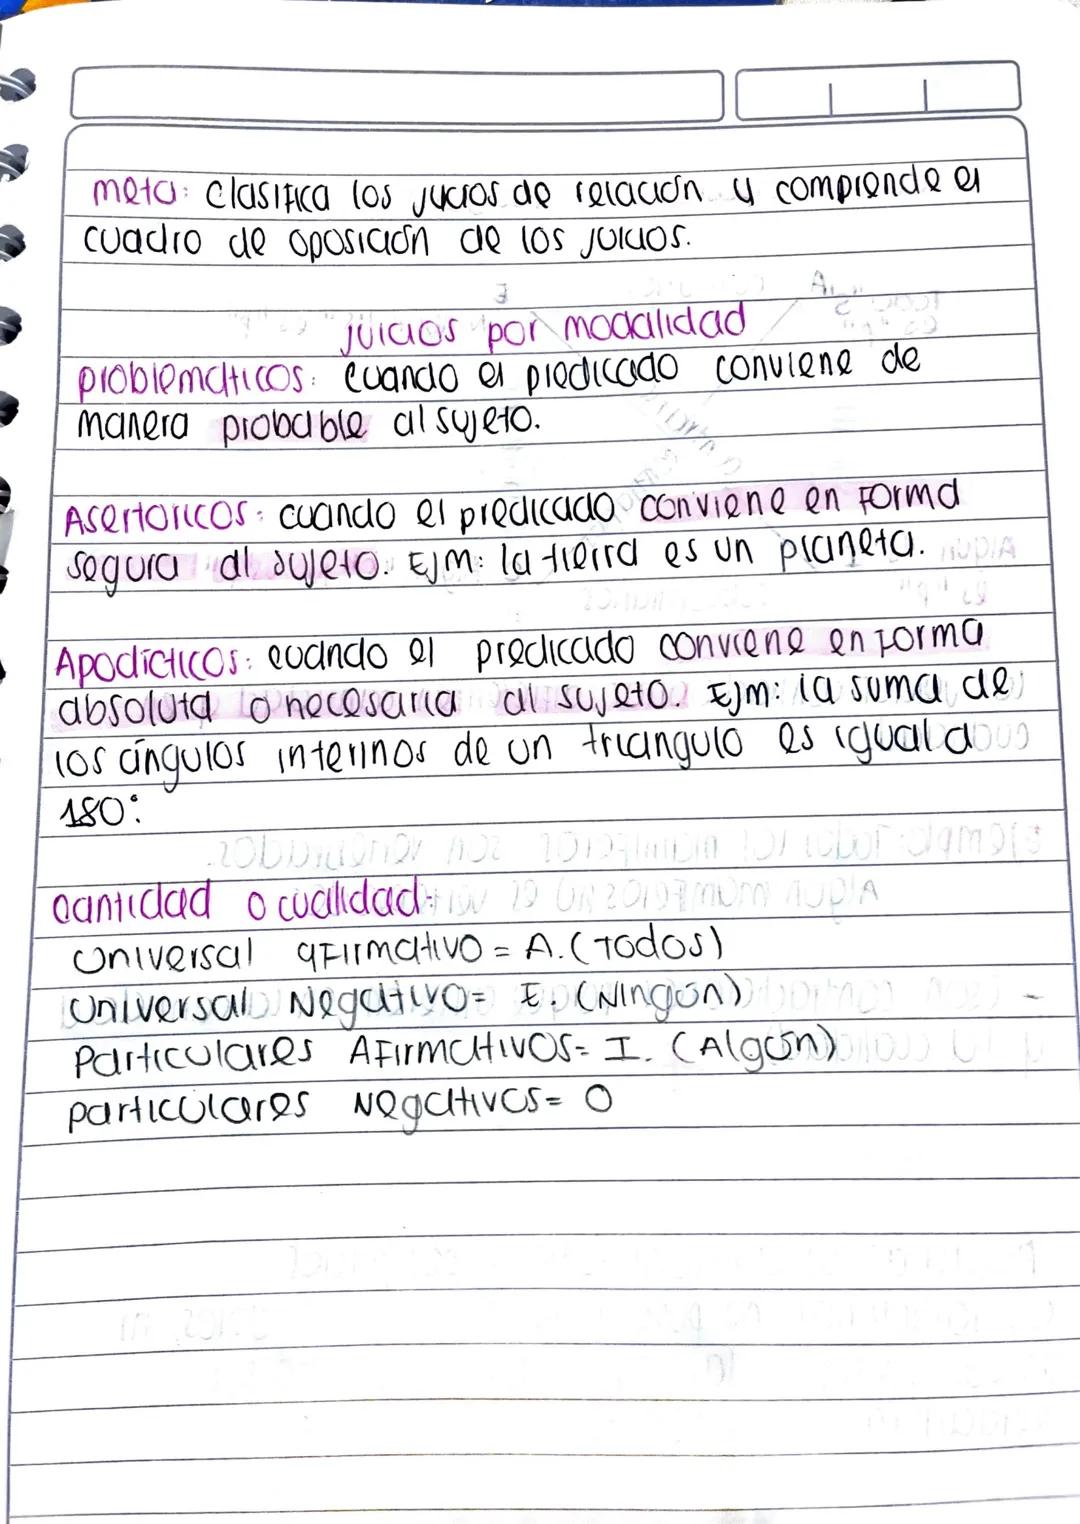 meta: clasifica los jucios de relación y comprende el
cuadro de oposición de los juicios.
juicios por modalidad
problemáticos: cuando el predicado conviene de
manera probable al sujeto.
Asertoricos: cuando el predicado conviene en forma
segura al sujeto. Ejm: la tierra es un planeta.
Apodícticos: cuando el predicado conviene en forma
absoluta o necesaria al sujeto. Ejm: la suma de
los ángulos interinos de un triangulo es igual a
180°
cantidad o cualidad:
Universal afirmativo = A. (Todos)
Universal Negativo= E. (Ningún)
Particulares Afirmativos= I. (Algún)
particulares Negativos= O